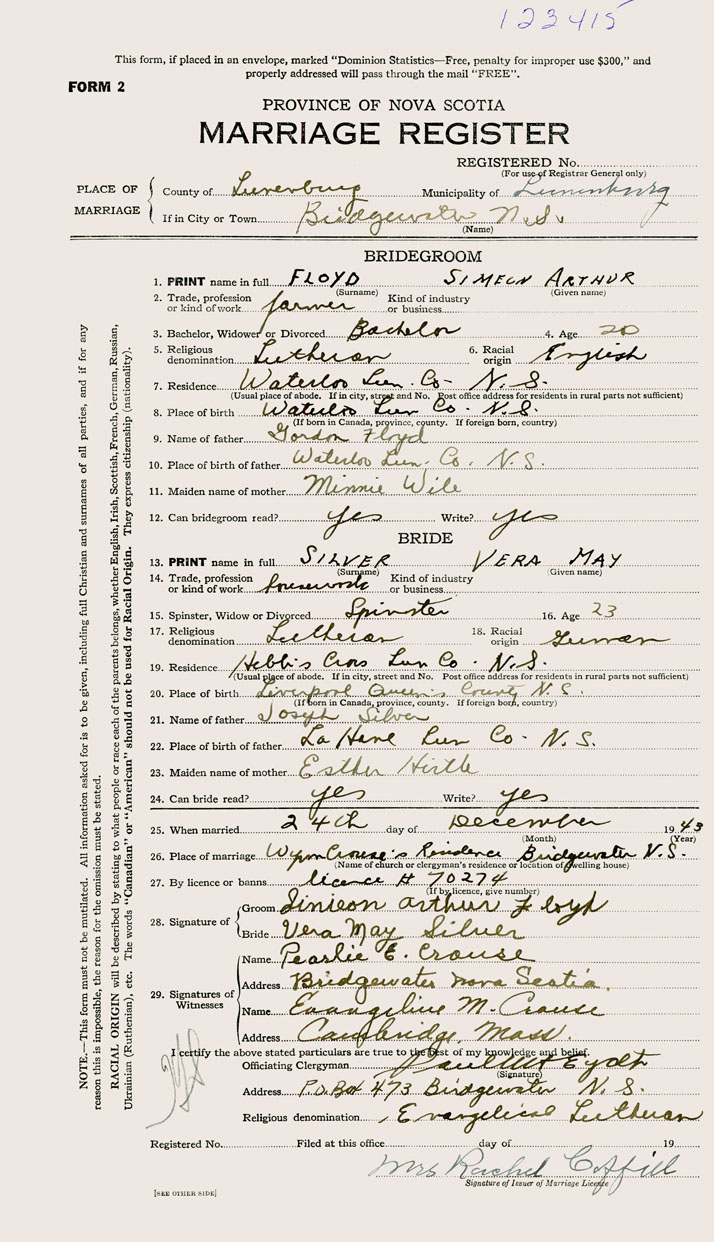 123415
This form, if placed in an envelope, marked "Dominion Statistics—Free, penalty for improper use $300," and
properly addressed will pass through the mail "FREE".
FORM 2
PROVINCE OF NOVA SCOTIA
MARRIAGE REGISTER
REGISTERED No.
(For use of Registrar General only)
PLACE OF MARRIAGE
County of Lunenburg Municipality of Lunenburg
If in City or Town Bridgewater N.S.
(Name)
BRIDEGROOM
1. PRINT name in full FLOYD SIMEON ARTHUR
(Surname) (Given name)
2. Trade, profession or kind of work farmer Kind of industry or business
3. Bachelor, Widower or Divorced Bachelor 4. Age 20
5. Religious denomination Lutheran 6. Racial origin English
7. Residence Waterloo Lun. Co- N.S.
(Usual place of abode. If in city, street and No. Post office address for residents in rural parts not sufficient)
8. Place of birth Waterloo Lun Co. N.S.
(If born in Canada, province, county. If foreign born, country)
9. Name of father Gordon Floyd
10. Place of birth of father Waterloo Lun. Co. N.S.
11. Maiden name of mother Minnie Wile
12. Can bridegroom read? yes Write? yes
BRIDE
13. PRINT name in full SILVER VERA MAY
(Surname) (Given name)
14. Trade, profession or kind of work housework Kind of industry or business
15. Spinster, Widow or Divorced Spinster 16. Age 23
17. Religious denomination Lutheran 18. Racial origin German
19. Residence Hebb's Cross Lun Co. N.S.
(Usual place of abode. If in city, street and No. Post office address for residents in rural parts not sufficient)
20. Place of birth Liverpool Queen's County N.S.
(If born in Canada, province, county. If foreign born, country)
21. Name of father Joseph Silver
22. Place of birth of father La Have Lun Co- N.S.
23. Maiden name of mother Esther Hirtle
24. Can bride read? yes Write? yes
25. When married 24th day of December 1943
(Month) (Year)
26. Place of marriage Crouse's Residence Bridgewater N.S.
(Name of church or clergyman's residence or location of dwelling house)
27. By licence or banns licence # 70274
(If by licence, give number)
28. Signature of
Groom Simeon Arthur Floyd
Bride Vera May Silver
29. Signatures of Witnesses
Name Pearlie E. Crouse
Address Bridgewater Nova Scotia.
Name Evangeline M. Crouse
Address Cambridge, Mass.
I certify the above stated particulars are true to the best of my knowledge and belief.
Officiating Clergyman Paul
(Signature)
Address P.O. Box 473 Bridgewater N.S.
Religious denomination Evangelical Lutheran
Registered No. Filed at this office day of 19
Mrs Rachel Coffill
Signature of Issuer of Marriage Licence
[SEE OTHER SIDE]
NOTE.—This form must not be mutilated. All information asked for is to be given, including full Christian and surnames of all parties, and if for any
reason this is impossible, the reason for the omission must be stated.
RACIAL ORIGIN will be described by stating to what people or race each of the parents belongs, whether English, Irish, Scottish, French, German, Russian,
Ukrainian (Ruthenian), etc. The words "Canadian" or "American" should not be used for Racial Origin. They express citizenship (nationality).